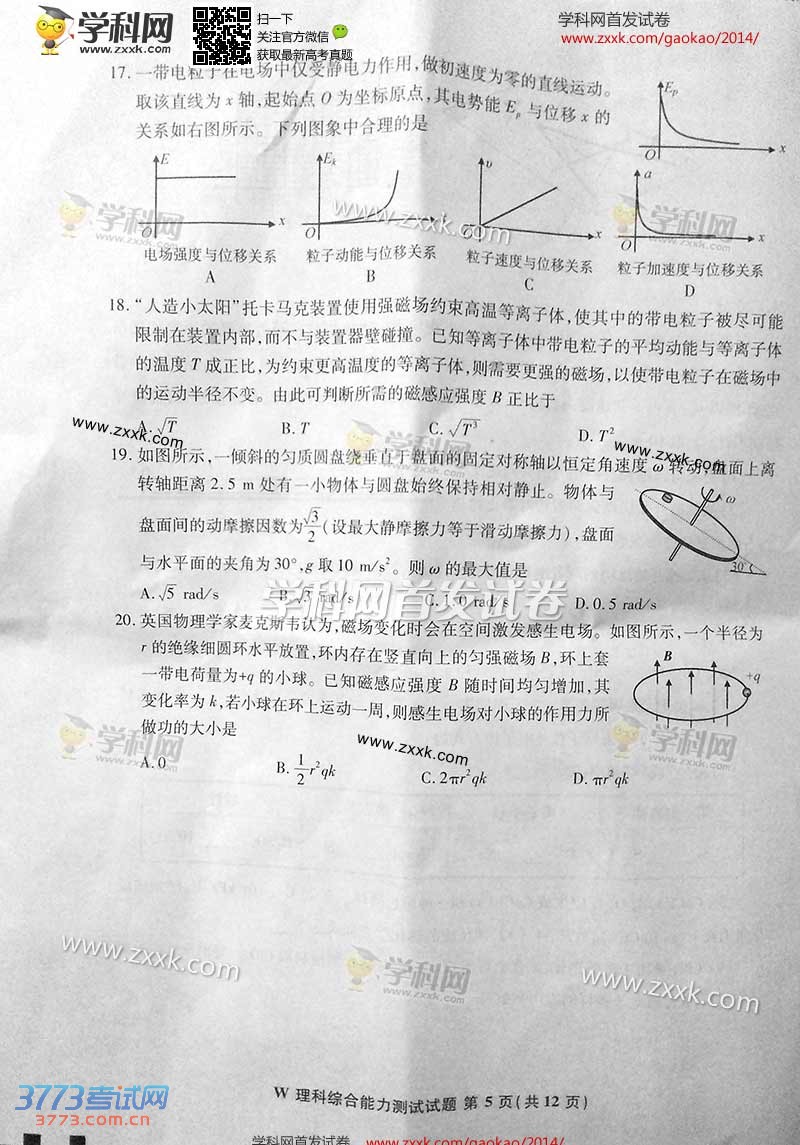 学科网
www.zxxk.com
扫一下
关注官方微信
获取最新高考真题
学科网首发试卷
www.zxxk.com/gaokao/2014/
17. 一带电粒子在电场中仅受静电力作用,做初速度为零的直线运动。
取该直线为 x 轴,起始点 O 为坐标原点,其电势能 Eₚ 与位移 x 的
关系如右图所示。下列图象中合理的是
Eₚ
O x
E
O x
Eₖ
O x
υ
O x
a
O x
电场强度与位移关系 粒子动能与位移关系 粒子速度与位移关系 粒子加速度与位移关系
A B C D
18. “人造小太阳”托卡马克装置使用强磁场约束高温等离子体,使其中的带电粒子被尽可能
限制在装置内部,而不与装置器壁碰撞。已知等离子体中带电粒子的平均动能与等离子体
的温度 T 成正比,为约束更高温度的等离子体,则需要更强的磁场,以使带电粒子在磁场中
的运动半径不变。由此可判断所需的磁感应强度 B 正比于
A. √T B. T C. √T³ D. T²
19. 如图所示,一倾斜的匀质圆盘绕垂直于盘面的固定对称轴以恒定角速度 ω 转动,盘面上离
转轴距离 2.5 m 处有一小物体与圆盘始终保持相对静止。物体与
盘面间的动摩擦因数为√3/2(设最大静摩擦力等于滑动摩擦力),盘面
与水平面的夹角为30°,g 取 10 m/s²。则 ω 的最大值是
A. √5 rad/s B. √3 rad/s C. 1.0 rad/s D. 0.5 rad/s
ω
30°
20. 英国物理学家麦克斯韦认为,磁场变化时会在空间激发感生电场。如图所示,一个半径为
r 的绝缘细圆环水平放置,环内存在竖直向上的匀强磁场 B,环上套
一带电荷量为+q 的小球。已知磁感应强度 B 随时间均匀增加,其
变化率为 k,若小球在环上运动一周,则感生电场对小球的作用力所
做功的大小是
B
+q
A. 0 B. 1/2 r²qk C. 2πr²qk D. πr²qk
学科网首发试卷
www.zxxk.com
W 理科综合能力测试试题 第 5 页(共 12 页)
3773考试网
3773.com.cn
学科网首发试卷
www.zxxk.com/gaokao/2014/